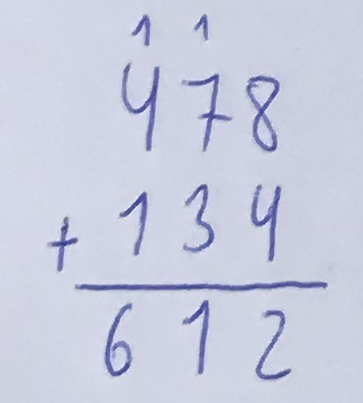 1 1
478
+ 134
612